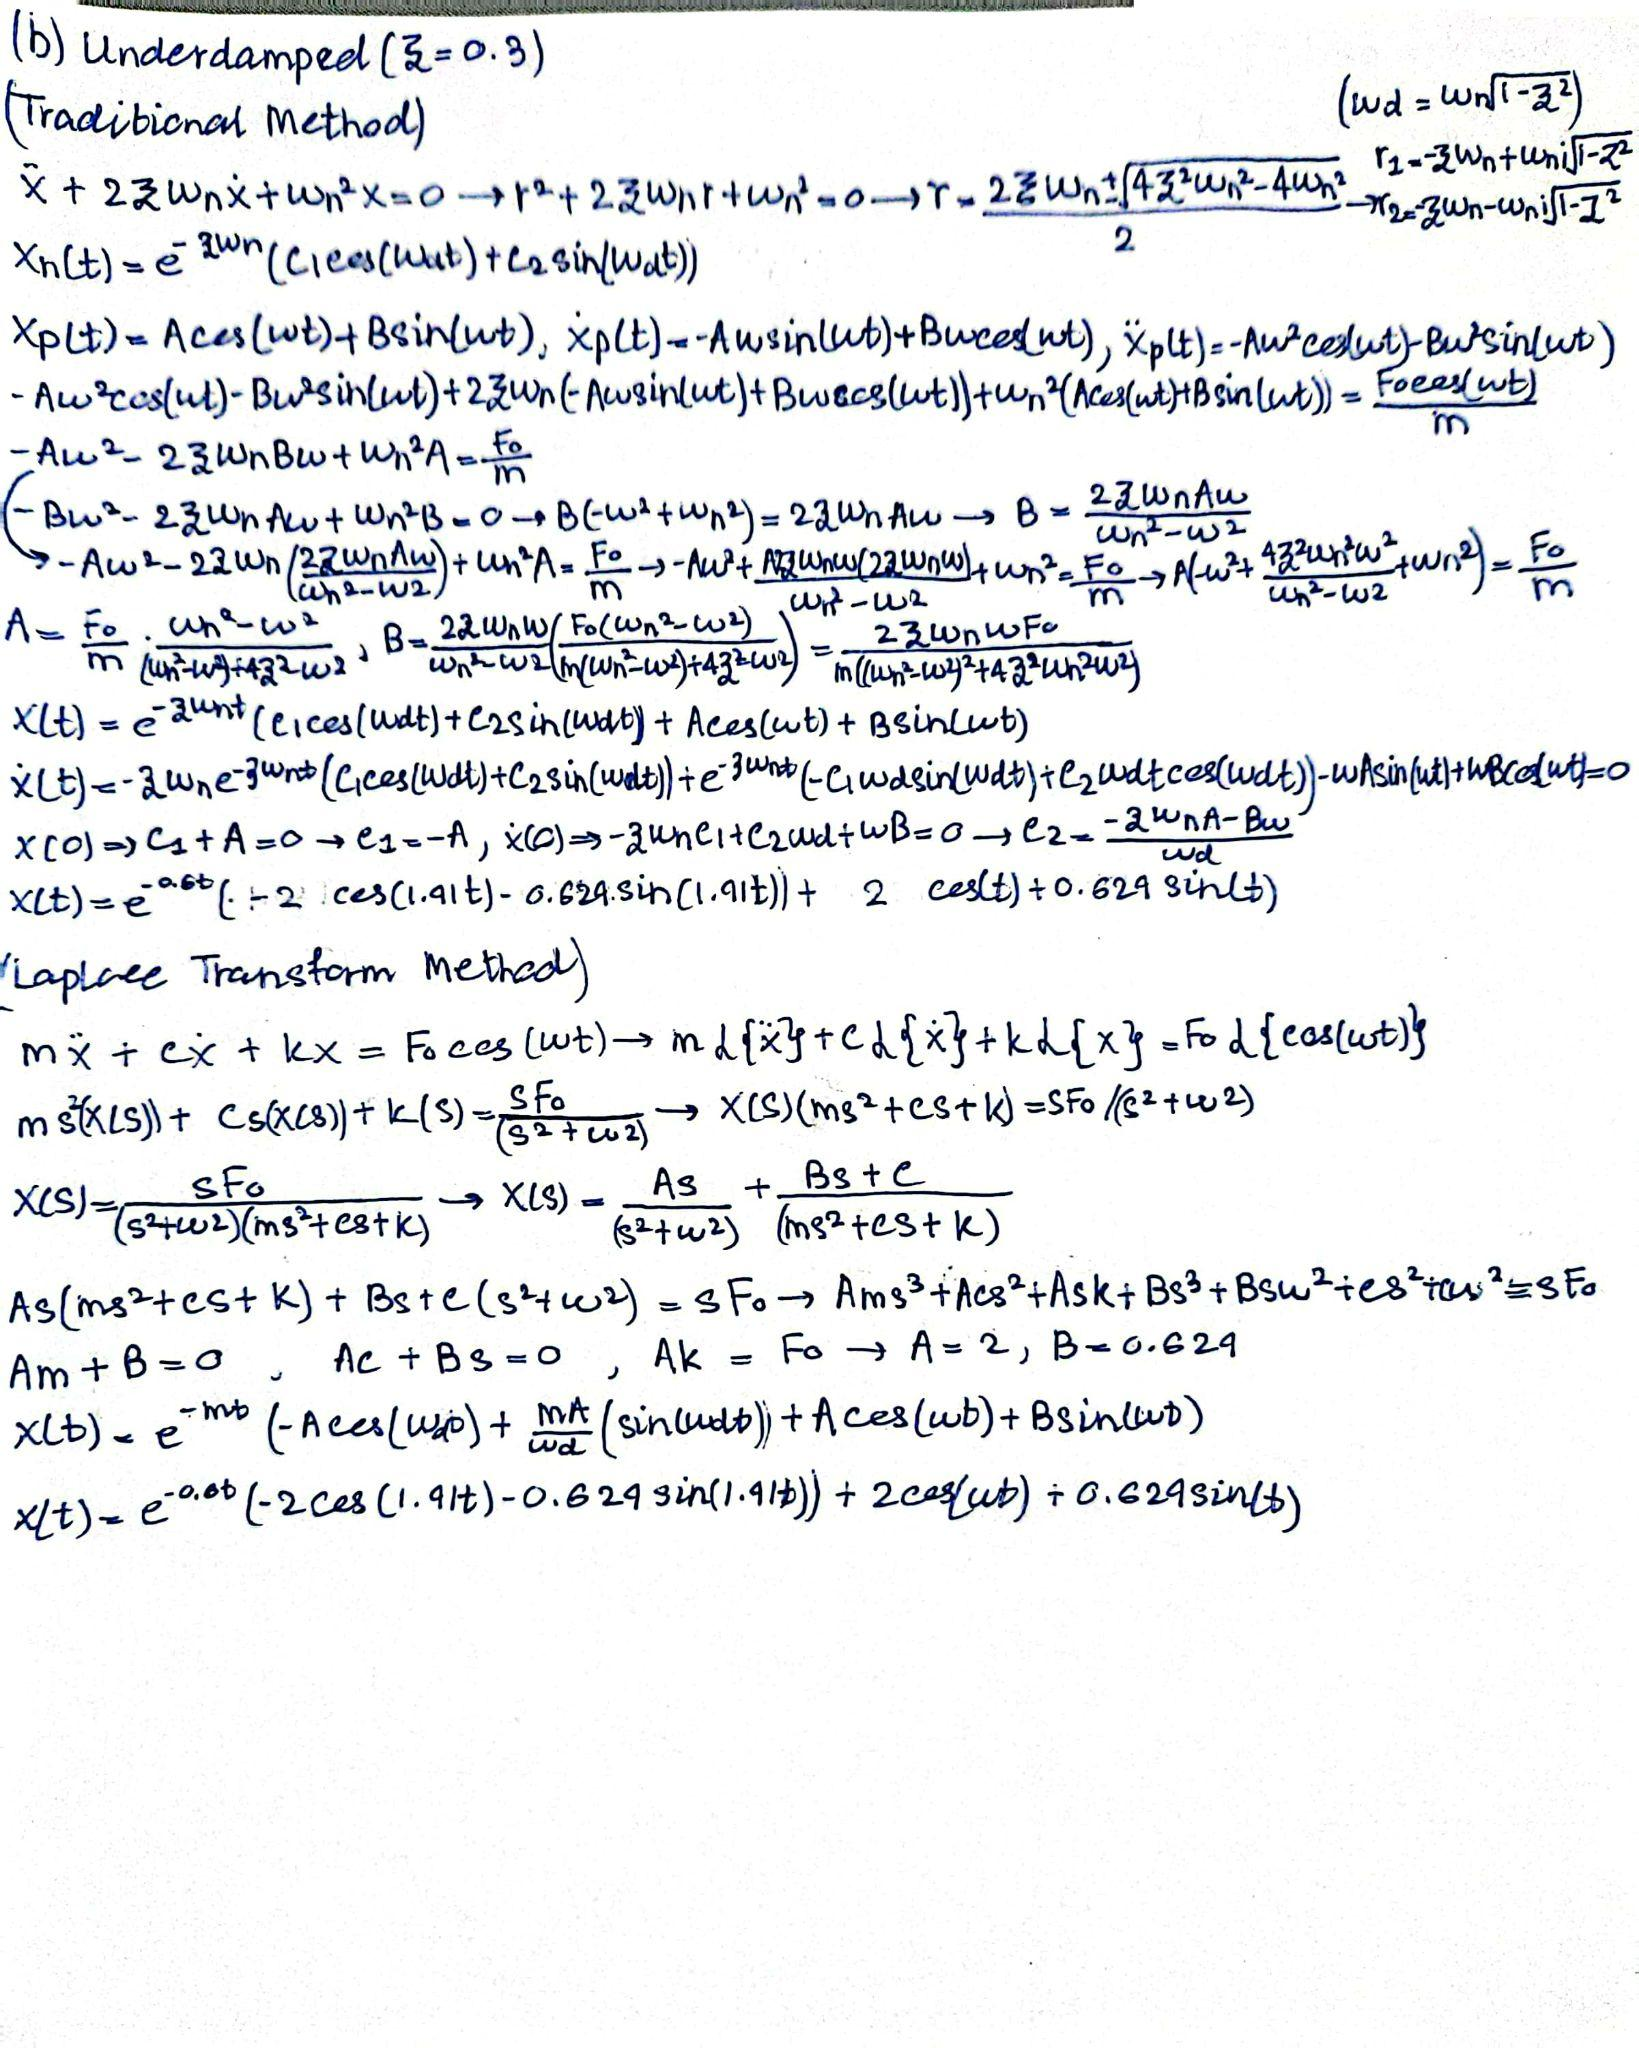 (b) Underdamped (ξ=0.3)
(Traditional Method) (ωd = ωn√1-ξ²)
ẍ + 2ξωnẋ + ωn²x=0 → r² + 2ξωnr + ωn² = 0 → r = 2ξωn±√4ξ²ωn²-4ωn² / 2 → r1=-ξωn+ωni√1-ξ² r2=-ξωn-ωni√1-ξ²
Xn(t) = e^-ξωn (C1cos(ωdt)+C2 sin(ωdt))
Xp(t) = Acos(ωt)+Bsin(ωt), ẋp(t)=-Aωsin(ωt)+Bωcos(ωt), ẍp(t)=-Aω²cos(ωt)-Bω²sin(ωt)
-Aω²cos(ωt)-Bω²sin(ωt)+2ξωn(-Aωsin(ωt)+Bωcos(ωt))+ωn²(Acos(ωt)+Bsin(ωt)) = Focos(ωt)/m
-Aω²- 2ξωnBω + ωn²A = Fo/m
-Bω²- 2ξωnAω + ωn²B = 0 → B(-ω²+ωn²) = 2ξωnAω → B = 2ξωnAω / ωn²-ω²
→ -Aω²-2ξωn(2ξωnAω / ωn²-ω²) + ωn²A = Fo/m → -Aω²+ A2ξωnω(2ξωnω) / ωn²-ω² + ωn² = Fo/m → A(-ω²+ 4ξ²ωn²ω² / ωn²-ω² + ωn²) = Fo/m
A = Fo/m · ωn²-ω² / (ωn²-ω²)+4ξ²ω² , B = 2ξωnω / ωn²-ω² (Fo(ωn²-ω²) / m(ωn²-ω²)+4ξ²ω²) = 2ξωnωFo / m((ωn²-ω²)²+4ξ²ωn²ω²)
X(t) = e^-ξωnt (C1cos(ωdt)+C2sin(ωdt)) + Acos(ωt) + Bsin(ωt)
ẋ(t) = -ξωne^-ξωnt (C1cos(ωdt)+C2sin(ωdt)) + e^-ξωnt (-C1ωdsin(ωdt)+C2ωdtcos(ωdt))-ωAsin(ωt)+ωBcos(ωt)=0
x(0) ⇒ C1 + A = 0 → C1 = -A, ẋ(0) ⇒ -ξωnC1+C2ωd+ωB=0 → C2 = -ξωnA-Bω / ωd
X(t) = e^-0.6t (-2 cos(1.91t)- 0.629.sin(1.91t)) + 2 cos(t)+0.629 sin(t)
(Laplace Transform Method)
mẍ + cẋ + kx = Focos(ωt) → mL{ẍ}+cL{ẋ}+kL{x} = FoL{cos(ωt)}
ms²(X(s)) + Cs(X(s)) + k(s) = SFo / (s²+ω²) → X(s)(ms²+cs+k) = SFo/(s²+ω²)
X(s) = SFo / (s²+ω²)(ms²+cs+k) → X(s) = As / (s²+ω²) + Bs+C / (ms²+cs+k)
As(ms²+cs+k) + Bs+C(s²+ω²) = sFo → Ams³+Acs²+Ask+Bs³+Bsω²+cs²+cω²=sFo
Am + B = 0 , Ac + Bs = 0 , Ak = Fo → A = 2, B = 0.629
X(t) = e^-mt (-Acos(ωdt) + mA/ωd (sin(ωdt)) + Acos(ωt) + Bsin(ωt)
x(t) = e^-0.6t (-2cos(1.91t)-0.629sin(1.91t)) + 2cos(ωt) + 0.629sin(t)